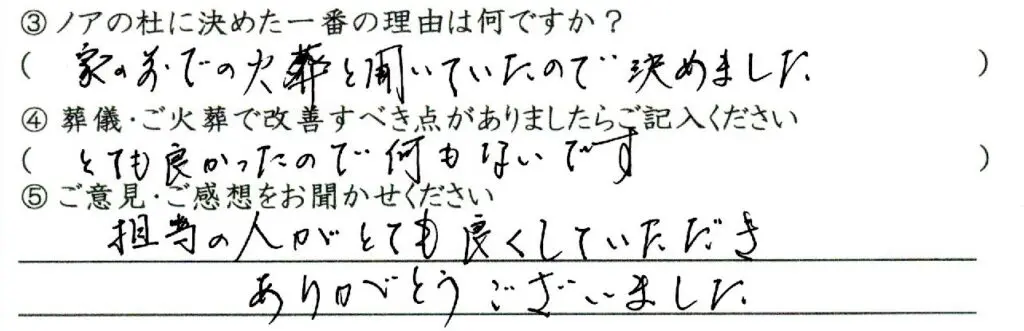 ③ノアの杜に決めた一番の理由は何ですか？
( 家の前での火葬と聞いていたので決めました )
④葬儀・ご火葬で改善すべき点がありましたらご記入ください
( とても良かったので何もないです )
⑤ご意見・ご感想をお聞かせください
担当の人がとても良くしていただき
ありがとうございました